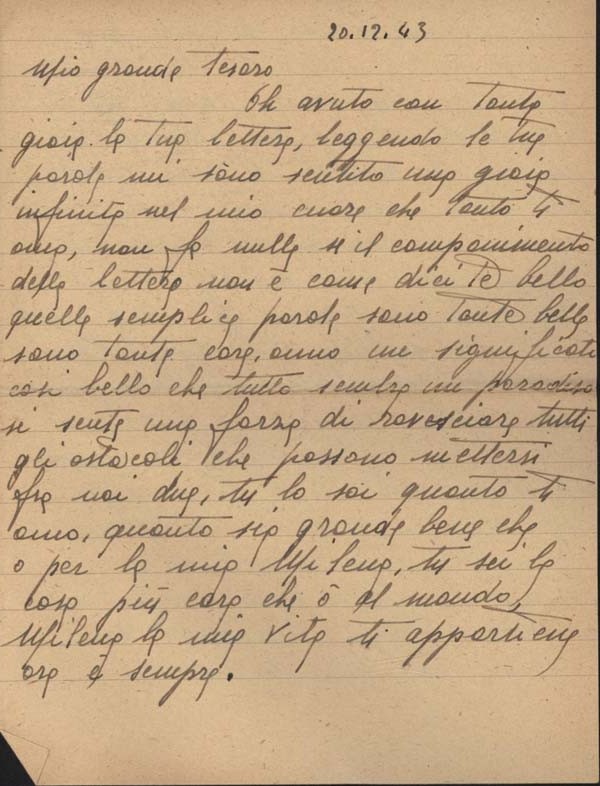 20.12.43
Mio grande tesoro
Oh avuto con tanta
gioia la tua lettera, leggendo le tue
parole mi sono sentito una gioia
infinita nel mio cuore che tanto ti
ama, non fa nulla se il componimento
della lettera non è come dici te bello
quelle semplice parole sono tante belle
sono tante care, anno un significato
così bello che tutto sembra un paradiso
si sente una forza di rovesciare tutti
gli ostacoli che possono mettersi
fra noi due, tu lo sai quanto ti
amo, quanto sia grande bene che
o per la mia Milena, tu sei la
cosa più cara che ò al mondo,
Milena la mia vita ti appartiene
ora e sempre.